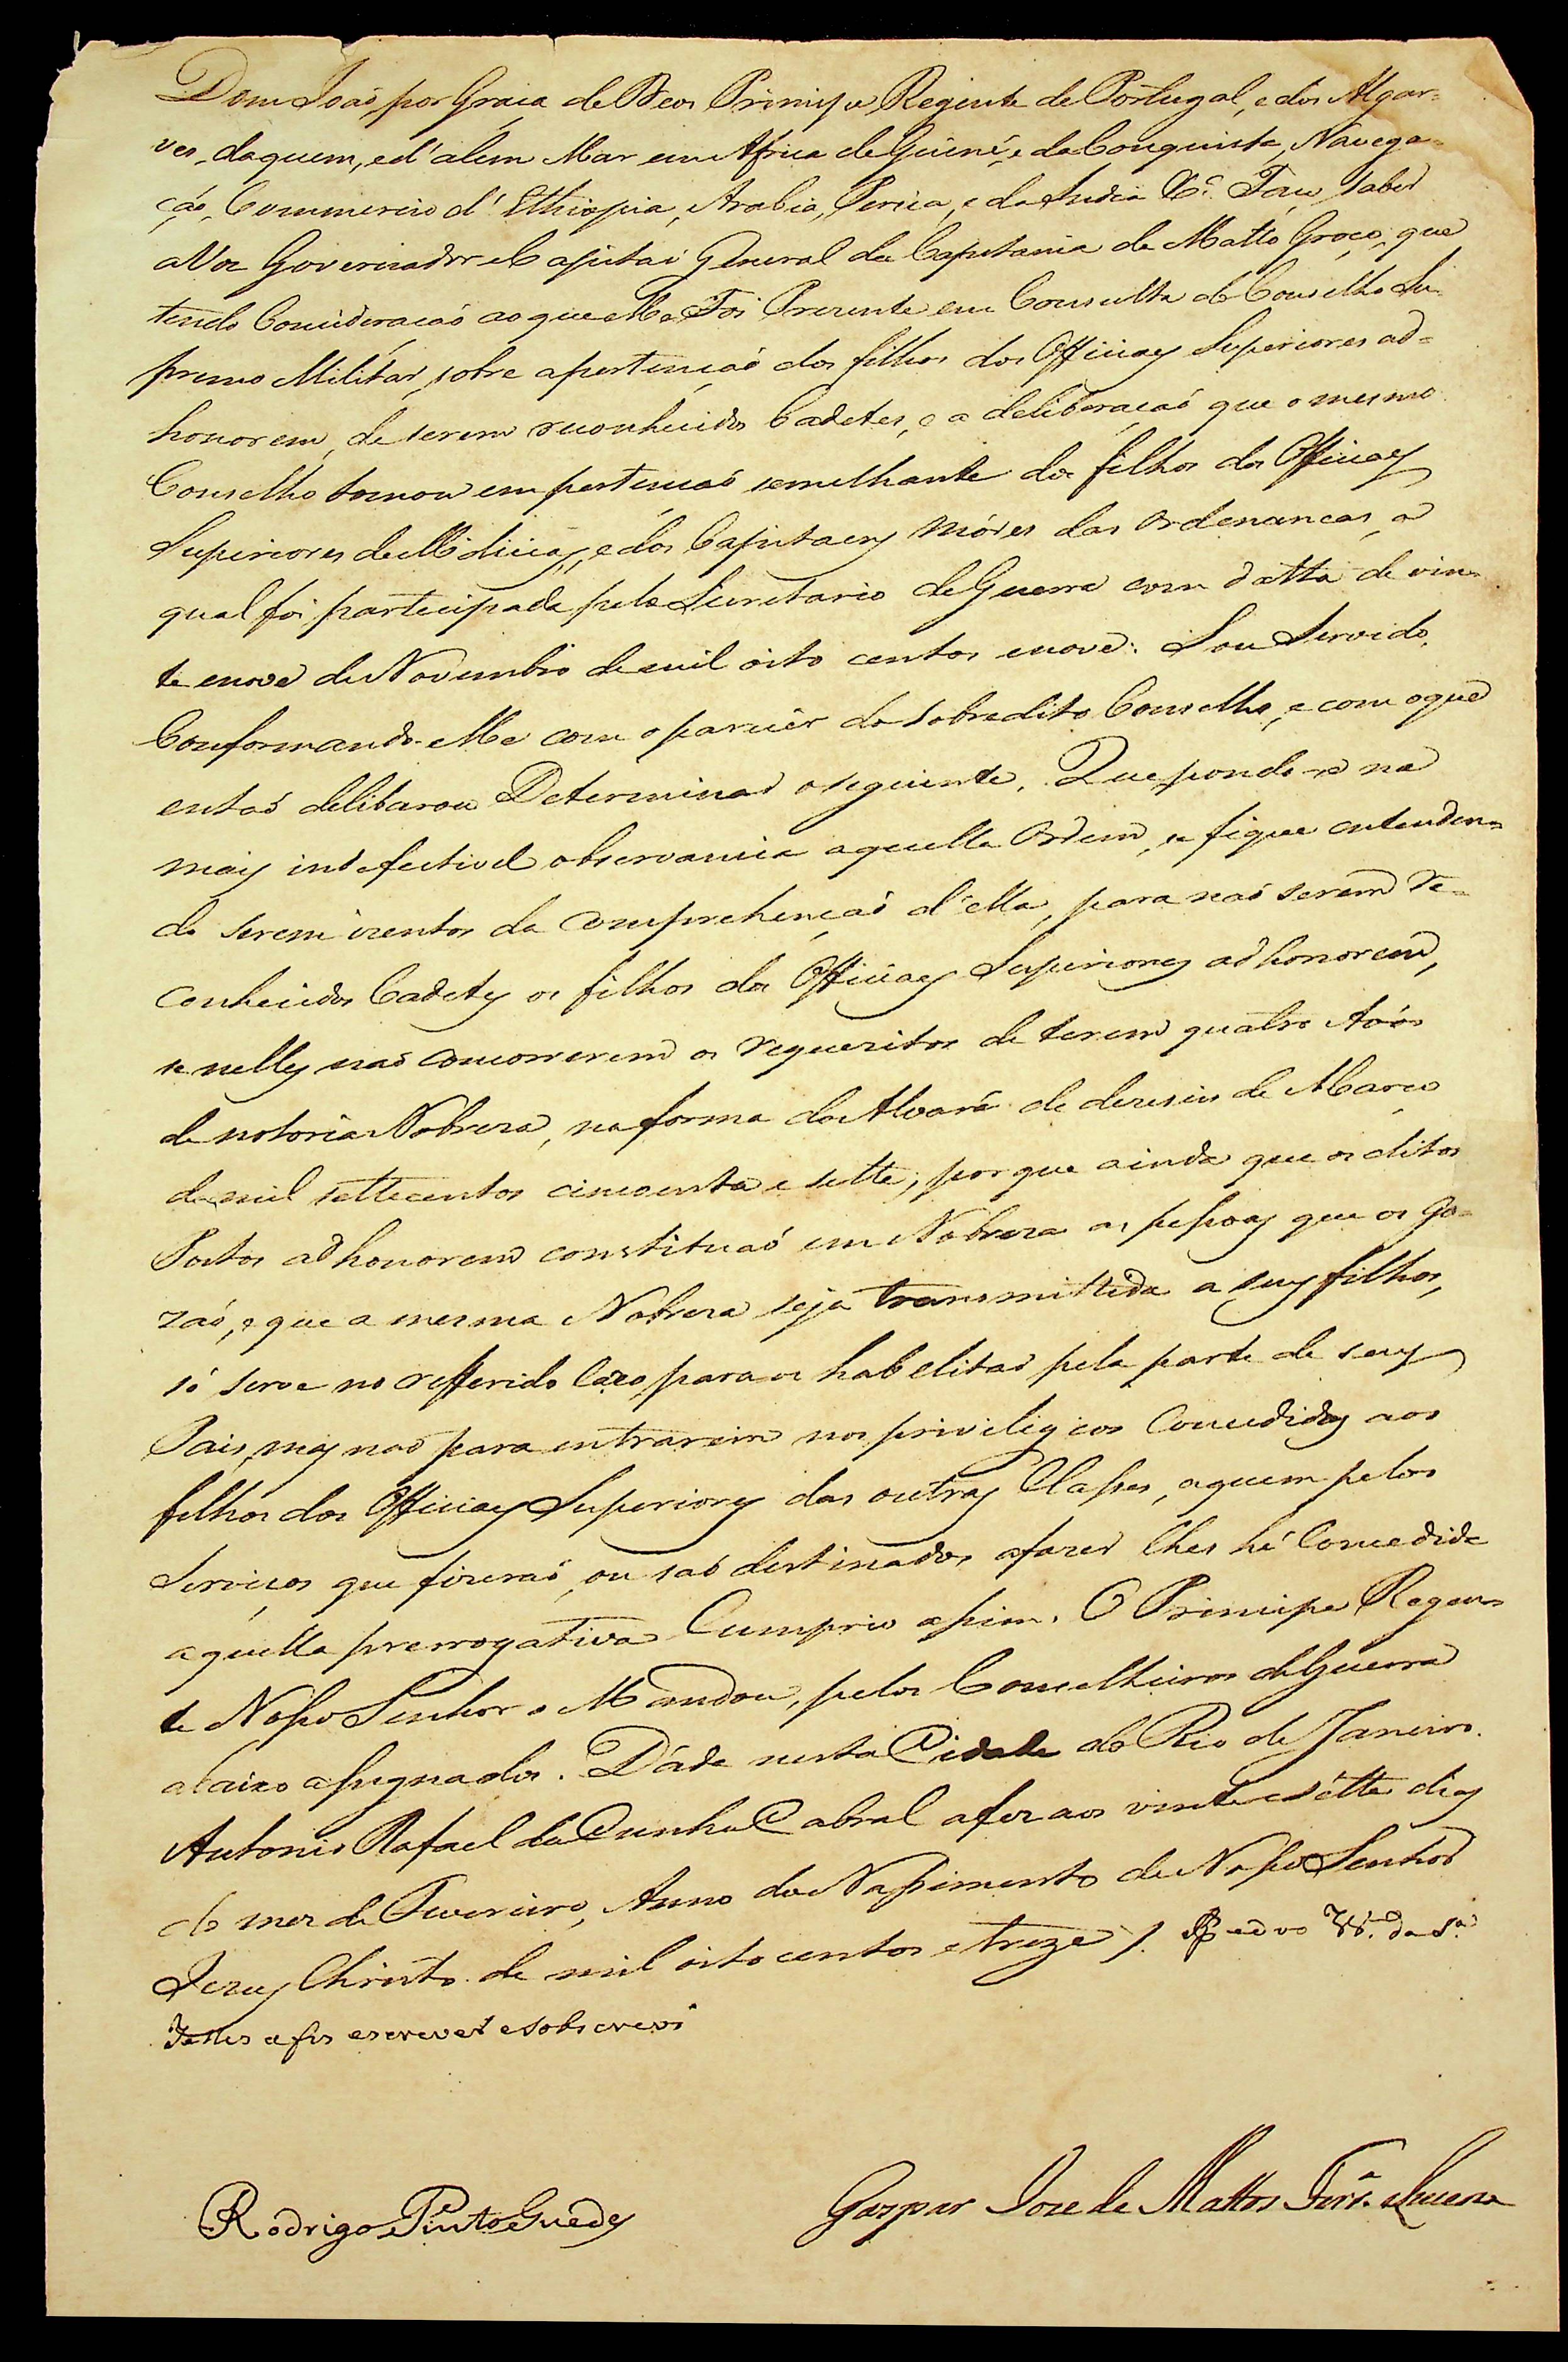 Dom Joaõ por Graça de Deos Principe Regente de Portugal, e dos Algar=
ves, daquem, e d'alem Mar em Africa de Guiné, e da Conquista, Navega=
çaõ, Commercio d'Ethiopia, Arabia, Percia, e da India &ª. Faço saber
a Vos Governador e Capitaõ General da Capitania de Matto Groço, que
tendo Concideraçaõ ao que Me Foi Prezente em Consulta do Conselho Su=
premo Militar, sobre apertençaõ dos filhos dos Officiaes Superiores ad=
honorem, de serem reconhecidos Cadetes, e a deliberaçaõ que o mesmo
Conselho tomou em pertençaõ semelhante dos filhos dos Officiaes
Superiores de Milicias, e dos Capitaens Móres das Ordenancas, a
qual foi partecipada pelo Secretario de Guerra com datta de vin=
te enove de Novembro de mil oito centos enove: Sou Servido,
Conformando-Me com o parecer do sobredito Conselho, e com oque
entaõ deliberou Determinar o seguinte. Que pondo-se na
mais indefectivel observancia aquella Ordem, se fique entenden=
do serem izentos da comprehençaõ d'ella, para naõ serem re=
conhecidos Cadetes os filhos dos Officiaes Superiores ad honorem,
se nelles naõ concorrerem os requezitos de terem quatro Avós
de notoria Nobreza, na forma do Alvará de dezeseis de Março
de mil settecentos cincoenta e sette; por que ainda que os ditos
Postos ad honorem constituaõ em Nobreza as pessoas que os go=
zaõ, e que a mesma Nobreza seja transmittida a seus filhos,
só serve no refferido Cazo para os habelitar pela parte de seus
Pais, mas naõ para entrarem nos privilegios Concedidos aos
filhos dos Officiaes Superiores das outras Classes, aquem pelos
Serviços que fizeraõ, ou saõ destinados afazer lhes hé Concedida
aquella prerrogativa. Cumprio assim. O Principe Regen=
te Nosso Senhor o Mandou, pelos Conselheiros de Guerra
abaixo assignados. Dáda nesta Cidade do Rio de Janeiro.
Antonio Rafael da Cunha Cabral afez aos vinte e sette dias
do mez de Fevereiro, Anno do Nassimento de Nosso Senhor
Jezus Christo de mil oito centos e treze /. Pedro Vrª. da Sª.
Telles afis escrever e sobscrevi
Rodrigo Pinto Guedes
Gaspar Jose de Mattos Ferrª. Lucena